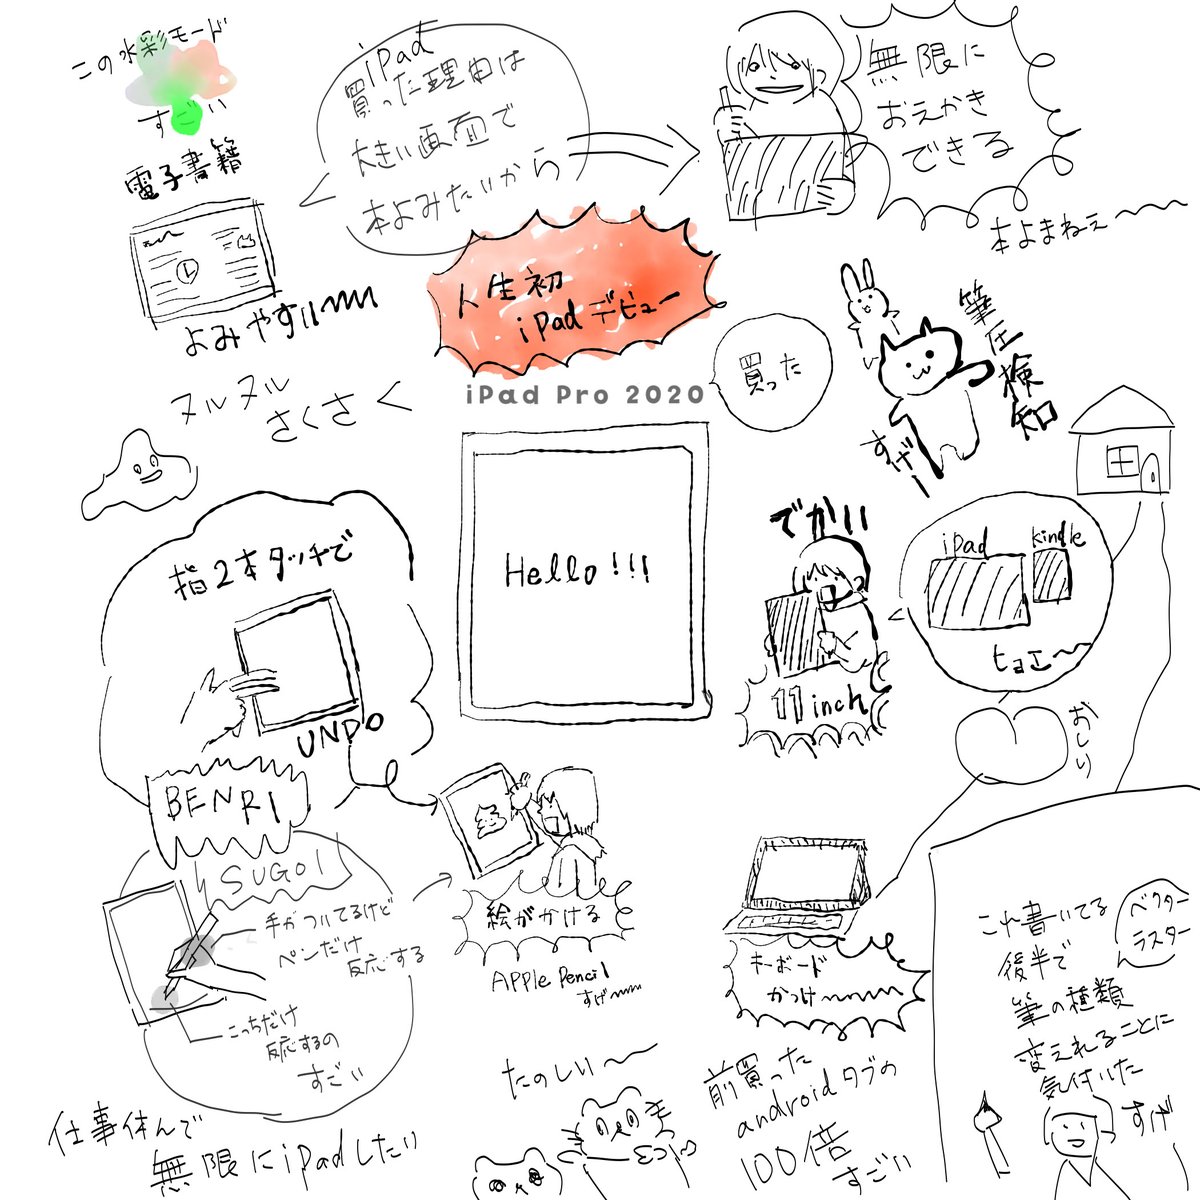 この水彩モード
すごい
iPad
買った理由は
大きい画面で
本よみたいから
無限に
おえかき
できる
本よまねぇ〜〜
電子書籍
よみやすい〜〜
人生初
iPadデビュー
iPad Pro 2020
買った
筆圧検知
すげー
ヌルヌル
さくさく
Hello!!!
でかい
11inch
iPad
kindle
おしり
指2本タッチで
UNDO
BENRI
SUGOI
手がついてるけど
ペンだけ
反応する
こっちだけ
反応するの
すごい
絵がかける
APPle Pencil
すげ〜〜
キーボード
かっけ〜〜〜
これ書いてる
後半で
筆の種類
変えれることに
気付いた
ベクター
ラスター
すげ
たのしい〜
前買った
androidタブの
100倍
すごい
仕事休んで
無限にiPadしたい